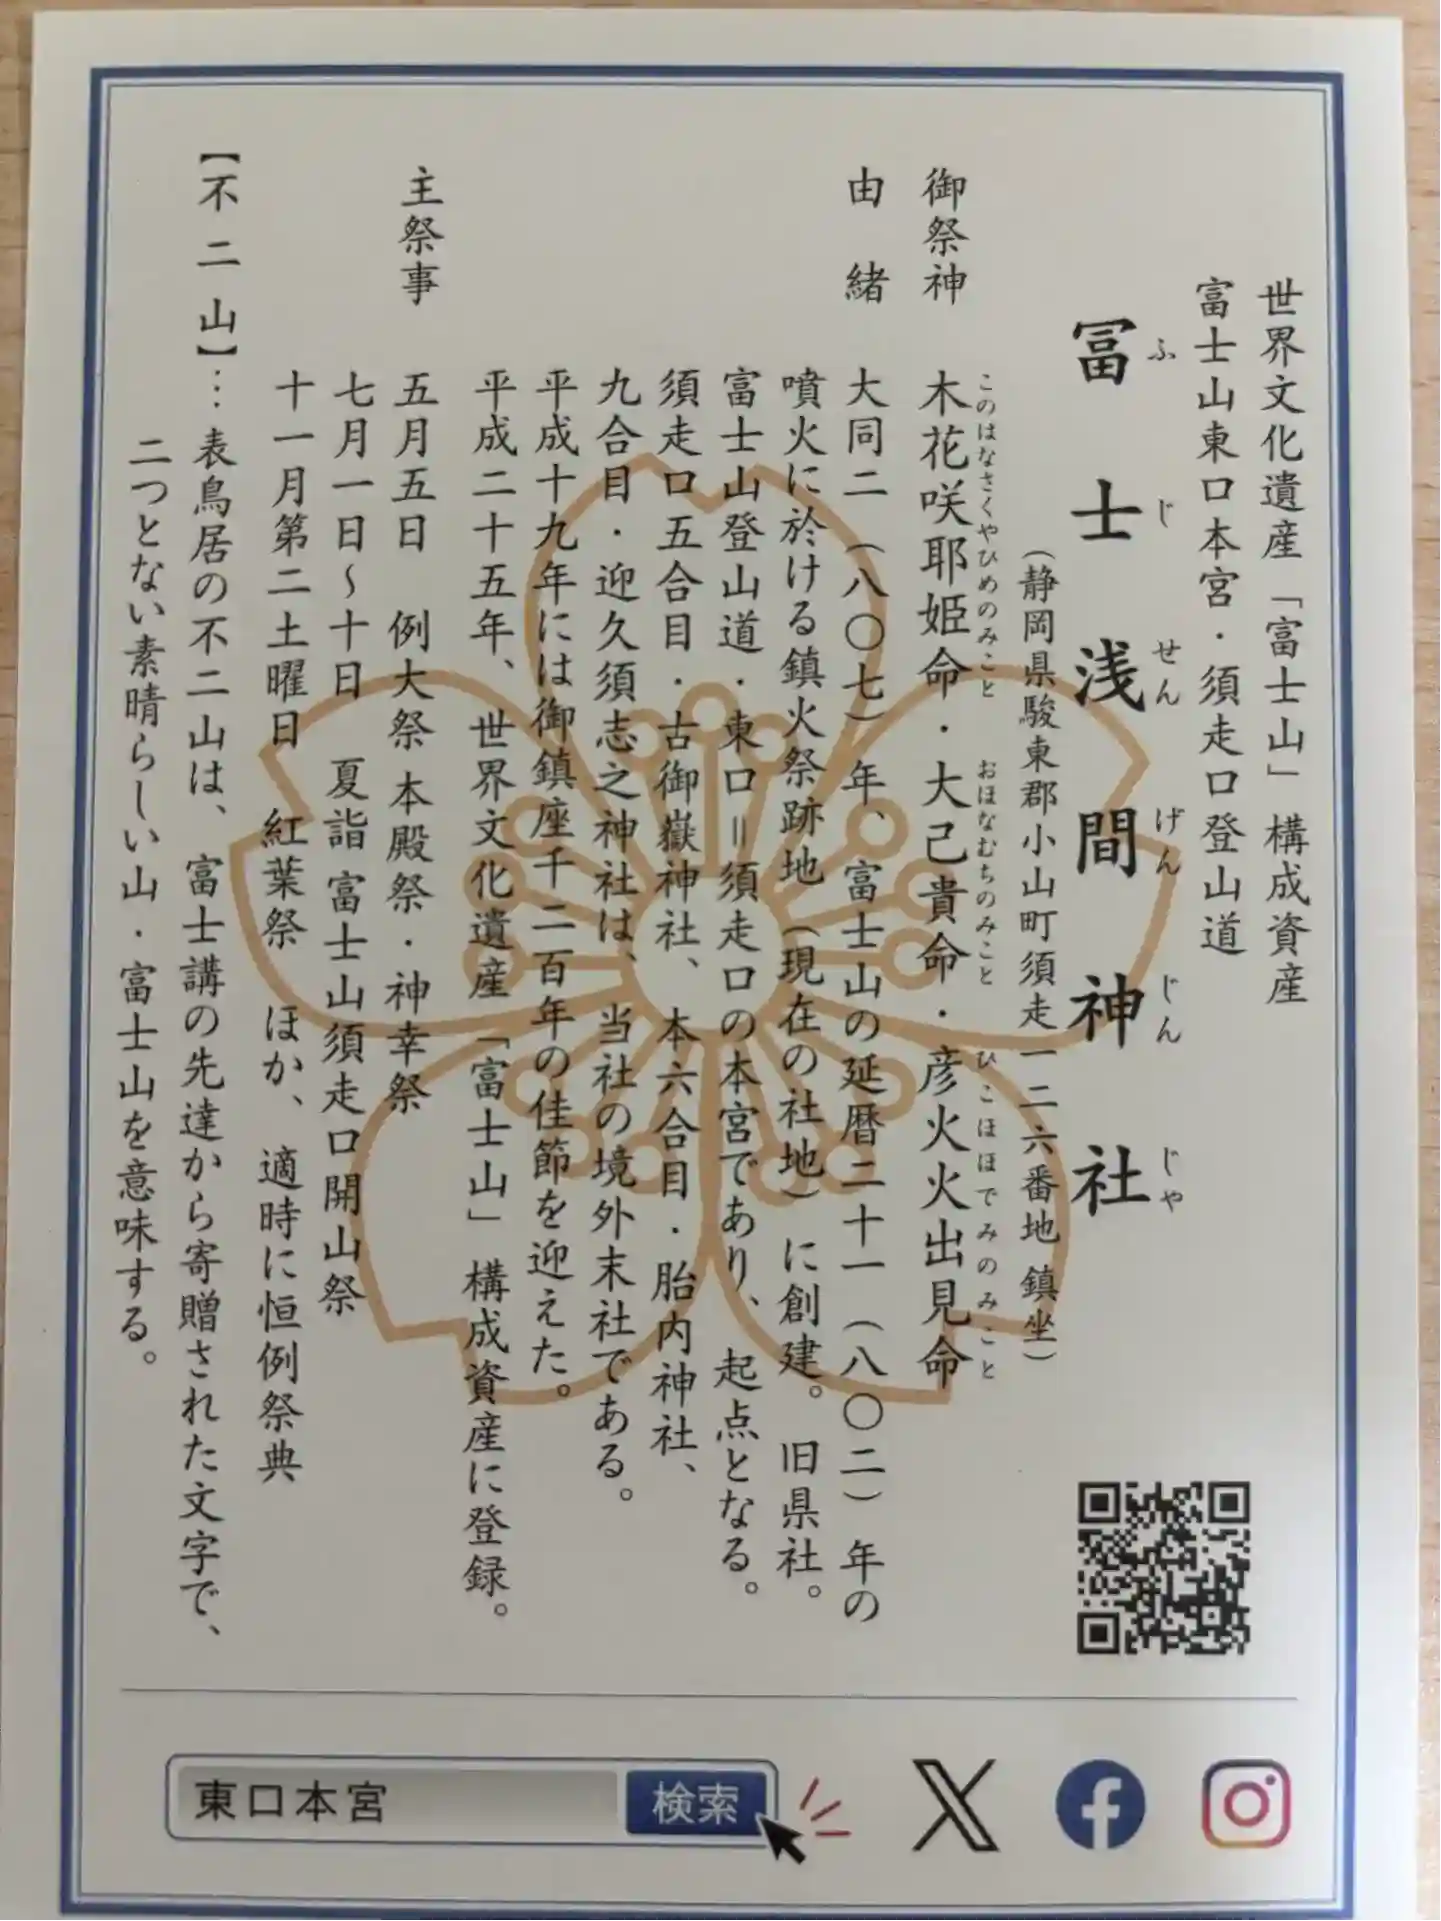 世界文化遺産「富士山」構成資産
富士山東口本宮・須走口登山道
冨士浅間神社
ふじせんげんじんじゃ
（静岡県駿東郡小山町須走一二六番地 鎮坐）
御祭神 木花咲耶姫命・大己貴命・彦火火出見命
このはなさくやひめのみこと おほなむちのみこと ひこほほでみのみこと
由緒 大同二（八〇七）年、富士山の延暦二十一（八〇二）年の
噴火に於ける鎮火祭跡地（現在の社地）に創建。旧県社。
富士山登山道・東口＝須走口の本宮であり、起点となる。
須走口五合目・古御嶽神社、本六合目・胎内神社、
九合目・迎久須志之神社は、当社の境外末社である。
平成十九年には御鎮座千二百年の佳節を迎えた。
平成二十五年、世界文化遺産「富士山」構成資産に登録。
主祭事 五月五日 例大祭 本殿祭・神幸祭
七月一日〜十日 夏詣 富士山須走口開山祭
十一月第二土曜日 紅葉祭 ほか、適時に恒例祭典
【不二山】… 表鳥居の不二山は、富士講の先達から寄贈された文字で、
二つとない素晴らしい山・富士山を意味する。
東口本宮 検索